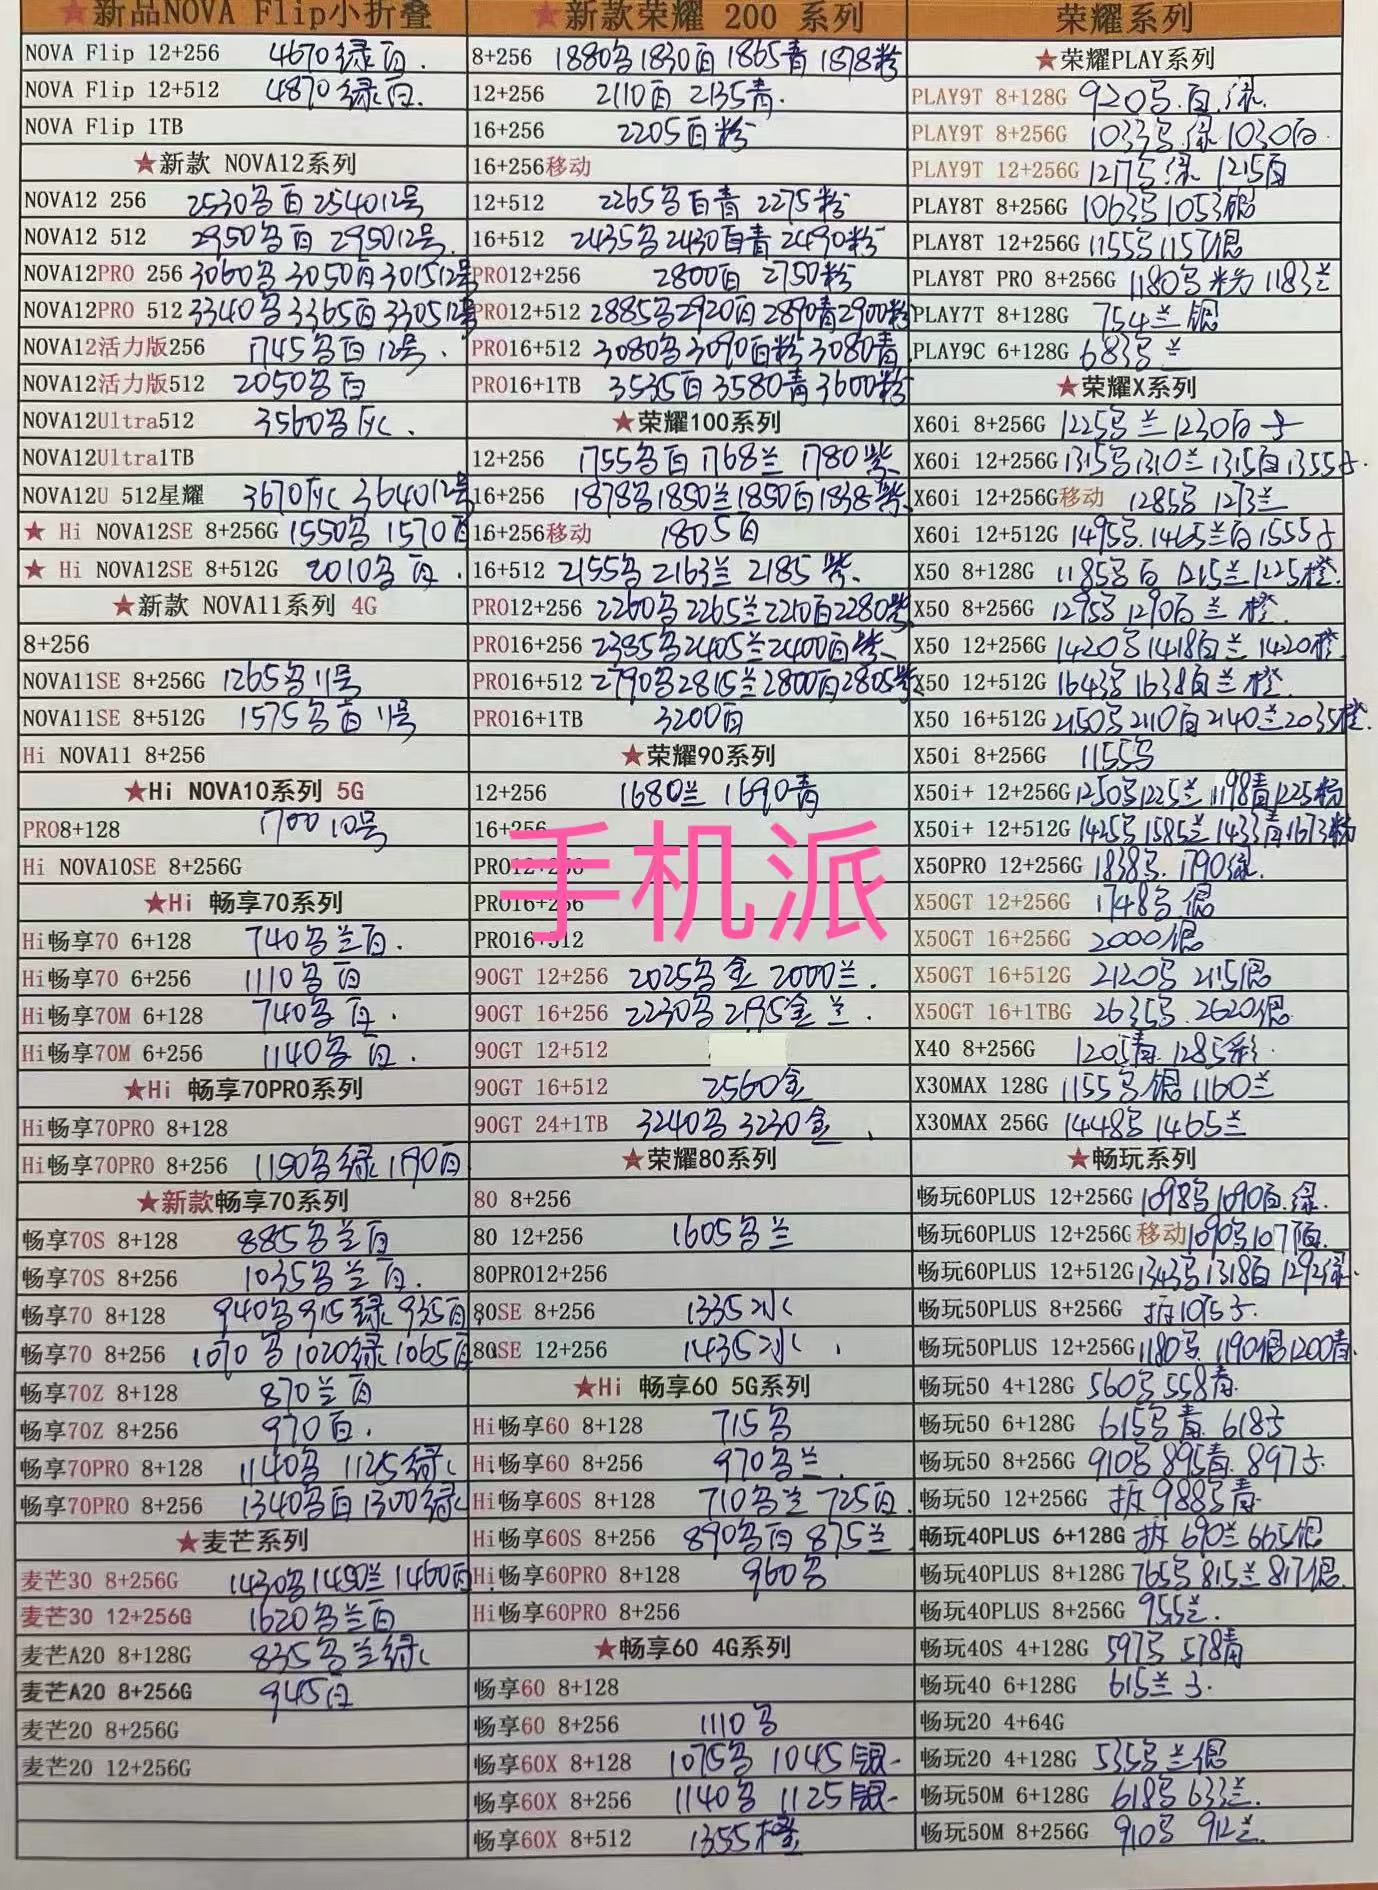 ★新品NOVA Flip小折叠
NOVA Flip 12+256 4670绿白.
NOVA Flip 12+512 4870绿白.
NOVA Flip 1TB
★新款 NOVA12系列
NOVA12 256 2530白 254012号
NOVA12 512 2950白 295012号
NOVA12PRO 256 3060 3050白301512号
NOVA12PRO 512 3340 3365白 330512号
NOVA12活力版256 1745白12号.
NOVA12活力版512 2050白
NOVA12Ultra512 3560灰.
NOVA12Ultra1TB
NOVA12U 512星耀 3670灰 364012号
★ Hi NOVA12SE 8+256G 1550 1570白
★ Hi NOVA12SE 8+512G 2010白.
★新款 NOVA11系列 4G
8+256
NOVA11SE 8+256G 1265 11号
NOVA11SE 8+512G 1575白11号
Hi NOVA11 8+256
★Hi NOVA10系列 5G
PRO8+128 1700 10号
Hi NOVA10SE 8+256G
★Hi 畅享70系列
Hi畅享70 6+128 740兰白.
Hi畅享70 6+256 1110白
Hi畅享70M 6+128 740白.
Hi畅享70M 6+256 1140白.
★Hi 畅享70PRO系列
Hi畅享70PRO 8+128
Hi畅享70PRO 8+256 绿 白
★新款畅享70系列
畅享70S 8+128 885兰白
畅享70S 8+256 1035兰白.
畅享70 8+128 940 915绿 935白
畅享70 8+256 1070 1020绿 1065白
畅享70Z 8+128 870兰白
畅享70Z 8+256 970白.
畅享70PRO 8+128 1140 1125绿
畅享70PRO 8+256 1340白1300绿
★麦芒系列
麦芒30 8+256G 1430 1450兰1460白
麦芒30 12+256G 1620兰白
麦芒A20 8+128G 835兰绿
麦芒A20 8+256G 945白
麦芒20 8+256G
麦芒20 12+256G
★新款荣耀 200 系列
8+256 1880 1830白 1865青 1878粉
12+256 2110白 2135青.
16+256 2205白粉
16+256移动
12+512 2265白青 2275粉
16+512 2435 2430白青2490粉
PRO12+256 2800白 2750粉
PRO12+512 2885 2920白2890青2900粉
PRO16+512 3080 3090白粉3080青
PRO16+1TB 3535白 3580青3600粉
★荣耀100系列
12+256 1755白 1768兰 1780紫
16+256 1878 1850兰1850白1838紫
16+256移动 1805白
16+512 2155 2163兰 2185紫
PRO12+256 2260 2265兰2210白2280紫
PRO16+256 2385 2405兰2400白紫
PRO16+512 2790 2815兰2800白2805紫
PRO16+1TB 3200白
★荣耀90系列
12+256 1680兰 1690青
16+256
PRO12+256
PRO16+256
PRO16+512
手机派
90GT 12+256 2025金 2000兰.
90GT 16+256 2230 2195金 兰.
90GT 12+512
90GT 16+512 2560金
90GT 24+1TB 3240 3230金
★荣耀80系列
80 8+256
80 12+256 1605兰
80PRO12+256
80SE 8+256 1335冰
80SE 12+256 1435冰
★Hi 畅享60 5G系列
Hi畅享60 8+128 715
Hi畅享60 8+256 970兰.
Hi畅享60S 8+128 710兰 725白.
Hi畅享60S 8+256 890白 875兰
Hi畅享60PRO 8+128 960
Hi畅享60PRO 8+256
★畅享60 4G系列
畅享60 8+128
畅享60 8+256 1110
畅享60X 8+128 1075 1045银
畅享60X 8+256 1140 1125银
畅享60X 8+512 1355橙
荣耀系列
★荣耀PLAY系列
PLAY9T 8+128G 920.白.绿.
PLAY9T 8+256G 1033.绿1030白
PLAY9T 12+256G 绿 1215白
PLAY8T 8+256G 1063 1053银
PLAY8T 12+256G 1155 1157银
PLAY8T PRO 8+256G 1180粉 1183兰
PLAY7T 8+128G 754兰 银
PLAY9C 6+128G 683兰
★荣耀X系列
X60i 8+256G 1225兰1230白
X60i 12+256G 1315 1310兰1315白1355
X60i 12+256G移动 1285 1273兰
X60i 12+512G 1495.1465兰白1555
X50 8+128G 1185白 1215兰1225橙.
X50 8+256G 1295 1290白兰 橙.
X50 12+256G 1420 1418白兰 1420橙
X50 12+512G 1643 1638白兰橙.
X50 16+512G 2150 2110白2140兰2035橙.
X50i 8+256G 1155
X50i+ 12+256G 1250 1225兰1198青1225粉
X50i+ 12+512G 1425 1585兰1433青1673粉
X50PRO 12+256G 1838. 1790绿.
X50GT 12+256G 1748银
X50GT 16+256G 2000银
X50GT 16+512G 2120 2115银
X50GT 16+1TBG 2635.2620银
X40 8+256G 1205青.1285彩.
X30MAX 128G 1155银 1160兰
X30MAX 256G 1448 1465兰
★畅玩系列
畅玩60PLUS 12+256G 1098 1090白.绿.
畅玩60PLUS 12+256G 移动1090 107 白.
畅玩60PLUS 12+512G 1343 1318白 1292绿.
畅玩50PLUS 8+256G 拆1095
畅玩50PLUS 12+256G 1180. 1190银1200青.
畅玩50 4+128G 560 558青.
畅玩50 6+128G 615青. 618
畅玩50 8+256G 910 895青.897
畅玩50 12+256G 拆988青
畅玩40PLUS 6+128G 拆 690兰 665银
畅玩40PLUS 8+128G 765 815兰817银.
畅玩40PLUS 8+256G 955兰.
畅玩40S 4+128G 597 578青
畅玩40 6+128G 615兰
畅玩20 4+64G
畅玩20 4+128G 535兰银
畅玩50M 6+128G 618 633兰.
畅玩50M 8+256G 910 912兰.